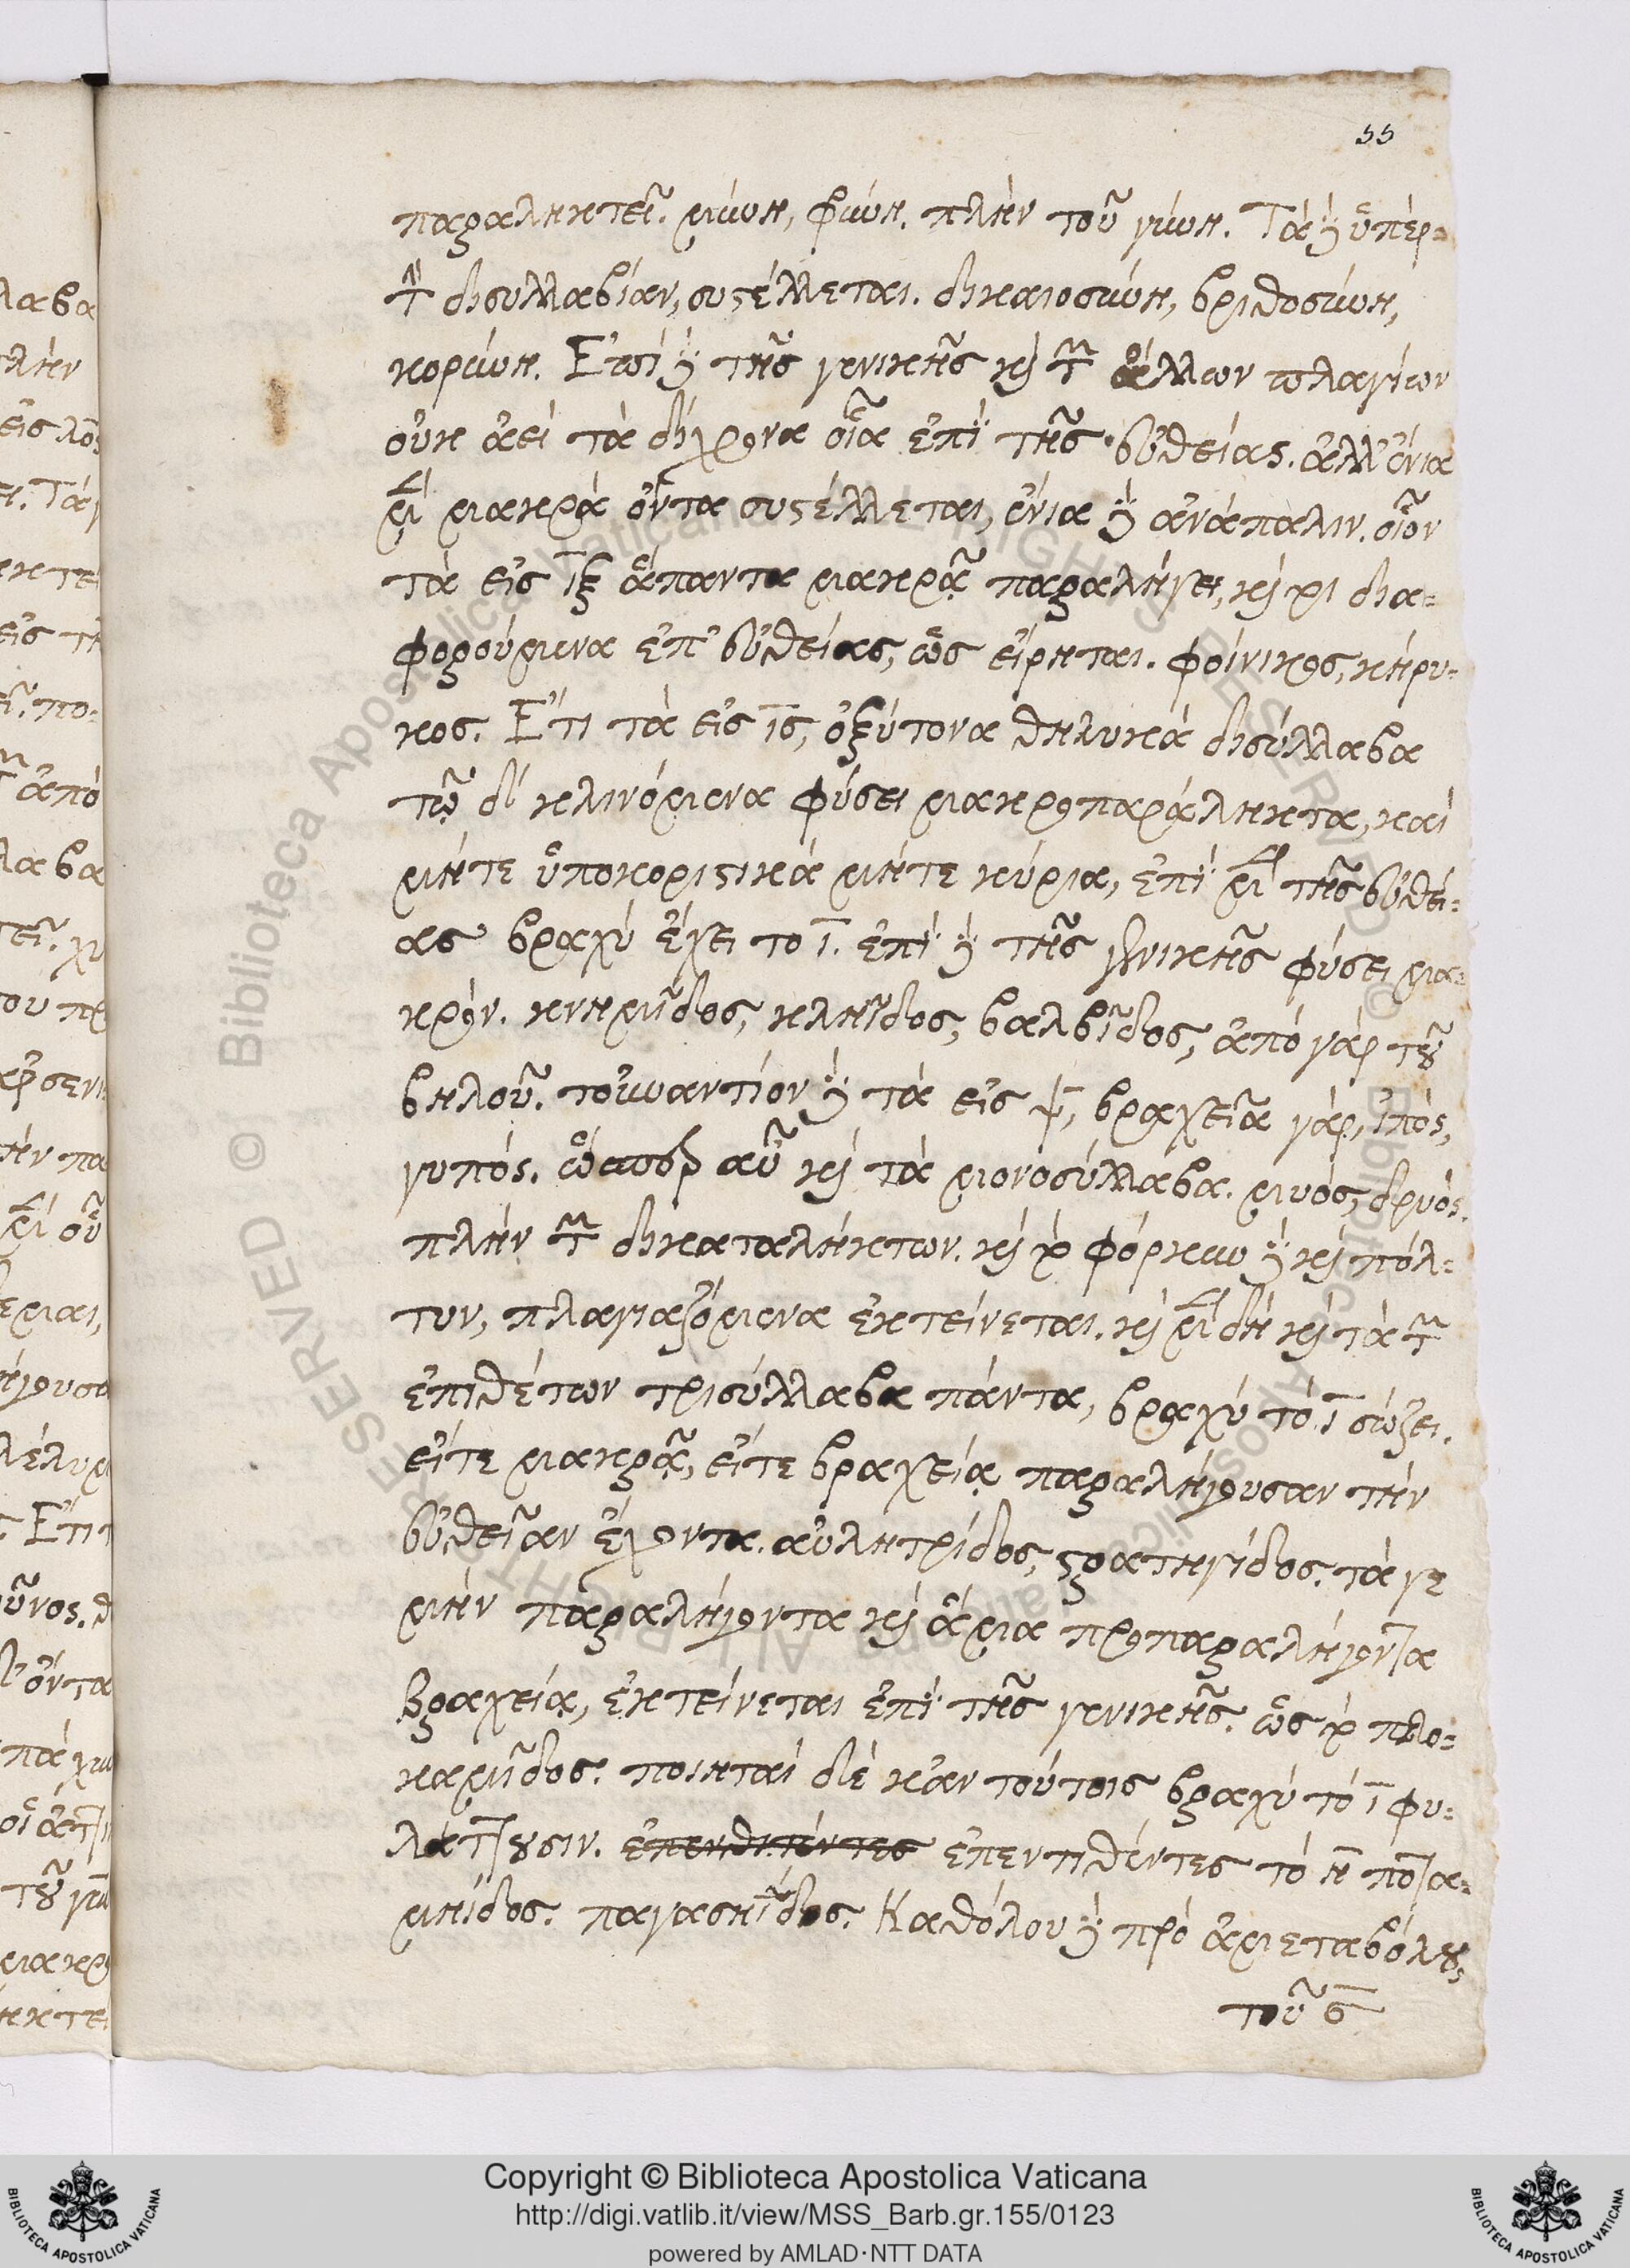 55
παραληκτεῖ. μύνη, φύνη. πλὴν τοῦ γύνη. Τὰ δὲ ὑπὲρ-
τὴν δισυλλαβίαν, συστέλλεται. δικαιοσύνη, βριθοσύνη,
κορύνη. Ἐπὶ δὲ τῆς γενικῆς καὶ τῶν ἄλλων πλαγίων
οὐκ ἀεὶ τὰ δίχρονα οἷα ἐπὶ τῆς εὐθείας. ἀλλ' ἔνια
μὲν μακρὰ ὄντα συστέλλεται, ἔνια δὲ ἀνάπαλιν. οἷον
τὰ εἰς ιξ ἅπαντα μακρᾷ παραλήγει, καὶ μὴ δια-
φορούμενα ἐπ' εὐθείας, ὡς εἴρηται. φοίνικος, κήρυ-
κος. Ἔτι τὰ εἰς ις, ὀξύτονα θηλυκὰ δισύλλαβα
τῷ δ κλινόμενα φύσει μακροπαράληκτα, καὶ
μήτε ὑποκοριστικὰ μήτε κύρια, ἐπὶ μὲν τῆς εὐθεί-
ας βραχὺ ἔχει το ι. ἐπὶ δὲ τῆς γενικῆς φύσει μα-
κρόν. κνημῖδος, κληῖδος, βαλβῖδος, ἀπὸ γὰρ τοῦ
βηλοῦ. τοὐναντίον δὲ τὰ εἰς ψ, βραχεῖα γὰρ, ἰπός,
γυπός. ὥσπερ αὖ καὶ τὰ μονοσύλλαβα. μυός, δρυός.
πλὴν τῶν δικαταλήκτων. καὶ τὸ φόρκυν δὲ καὶ πόλ-
τυν, πλαγιαζόμενα ἐκτείνεται. καὶ μὲν δὴ καὶ τὰ τῶν
ἐπιθέτων τρισύλλαβα πάντα, βραχὺ τὸ ι σώζει.
εἴτε μακρᾷ, εἴτε βραχείᾳ παραλήγουσαν τὴν
εὐθεῖαν ἔχοντα. αὐλητρίδος, στρατηγίδος. τὰ γε
μὴν παραλήγοντα καὶ ἅμα προπαραλήγοντα
βραχείᾳ, ἐκτείνεται ἐπὶ τῆς γενικῆς. ὡς τὸ πλο-
καμῖδος. ποιηταὶ δὲ κἂν τούτοις βραχὺ τὸ ι φυ-
λάττουσιν. ἐπεντιθέντες τὸ η ποτα-
μηίδος. παγασηῒδος. Καθόλου δὲ πρὸ ἀμεταβόλου,
τοῦ σ
Copyright © Biblioteca Apostolica Vaticana
http://digi.vatlib.it/view/MSS_Barb.gr.155/0123
powered by AMLAD·NTT DATA